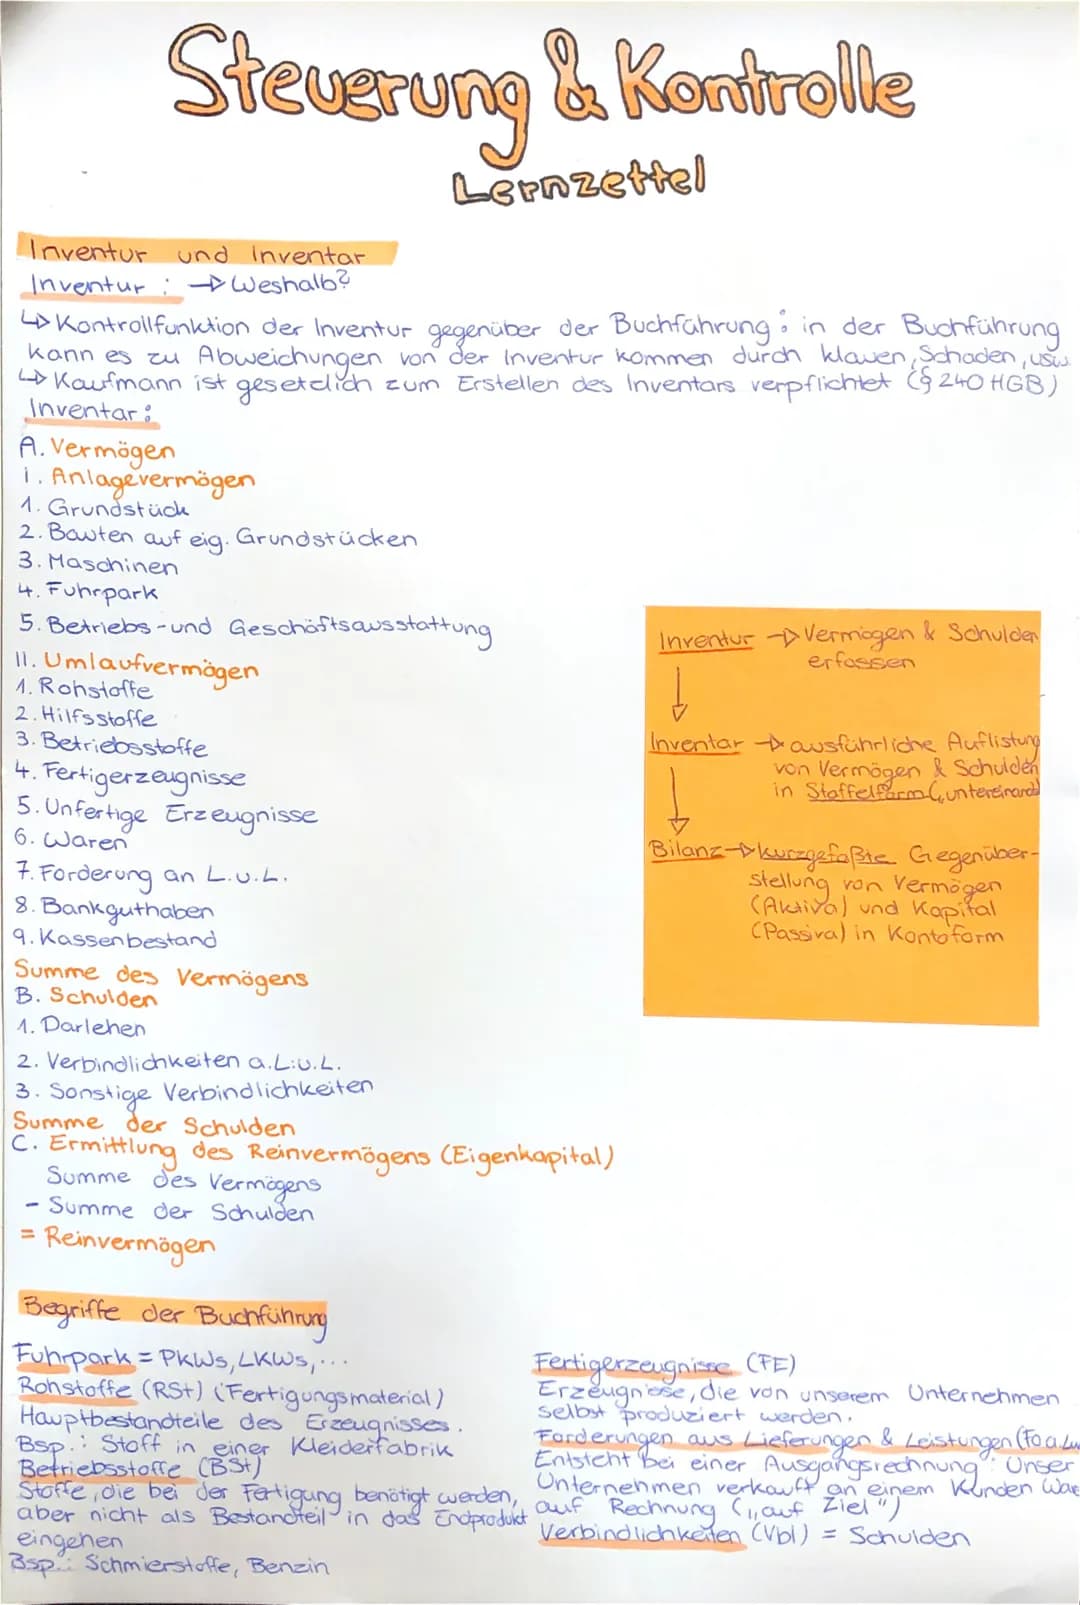 Steuerung & Kontrolle
Lernzettel
Inventur und Inventar
Inventur : → Weshalb?
↳ Kontrollfunktion der Inventur gegenüber der Buchführung: in der Buchführung
kann es zu Abweichungen von der Inventur kommen durch klauen, Schaden, usw.
↳ Kaufmann ist gesetzlich zum Erstellen des Inventars verpflichtet (§ 240 HGB)
Inventar:
A. Vermögen
I. Anlagevermögen
1. Grundstück
2. Bauten auf eig. Grundstücken
3. Maschinen
4. Fuhrpark
5. Betriebs-und Geschäftsausstattung
II. Umlaufvermögen
1. Rohstoffe
2. Hilfsstoffe
3. Betriebsstoffe
4. Fertigerzeugnisse
5. Unfertige Erzeugnisse
6. Waren
7. Forderung an L.u.L.
8. Bankguthaben
9. Kassenbestand
Summe des Vermögens
B. Schulden
1. Darlehen
2. Verbindlichkeiten a.L.u.L.
3. Sonstige Verbindlichkeiten
Summe der Schulden
C. Ermittlung des Reinvermögens (Eigenkapital)
Summe des Vermögens
- Summe der Schulden
= Reinvermögen
Inventur → Vermögen & Schulden
erfassen
↓
Inventar → ausführliche Auflistung
von Vermögen & Schulden
in Staffelform („untereinand
↓
Bilanz → kurzgefaßte Gegenüber-
stellung von Vermögen
(Aktiva) und Kapital
(Passiva) in Kontoform
Begriffe der Buchführung
Fuhrpark = PKWs, LKWs, ...
Rohstoffe (RSt) (Fertigungsmaterial)
Hauptbestandteile des Erzeugnisses.
Bsp.: Stoff in einer Kleiderfabrik
Betriebsstoffe (BSt)
Stoffe, die bei der Fertigung benötigt werden,
aber nicht als Bestandteil in das Endprodukt
eingehen
Bsp.: Schmierstoffe, Benzin
Fertigerzeugnisse (FE)
Erzeugnisse, die von unserem Unternehmen
selbst produziert werden.
Forderungen aus Lieferungen & Leistungen (Fo a Lu
Entsteht bei einer Ausgangsrechnung: Unser
Unternehmen verkauft an einem Kunden Ware
auf Rechnung („auf Ziel")
Verbindlichkeiten (Vbl) = Schulden